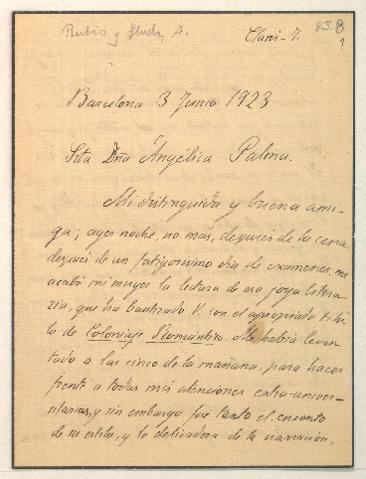 Rubió y Lluch, A.
Claris - 7.
83.8
1
Barcelona 3 Junio 1923
Srta Dña Angélica Palma.
Mi distinguida y buena ami-
ga; ayer noche, no mas, después de la cena
después de un fatigosisimo dia de examenes, me
acabó mi mujer la lectura de esa joya litera-
ria, que ha bautizado V. con el apropiado titu-
lo de Coloniaje Romántico. Me habia levan-
tado a las cinco de la mañana, para hacer
frente a todas mis atenciones extra-univer-
sitarias, y sin embargo fué tanto el encanto
de su estilo, y la delicadeza de la narración,